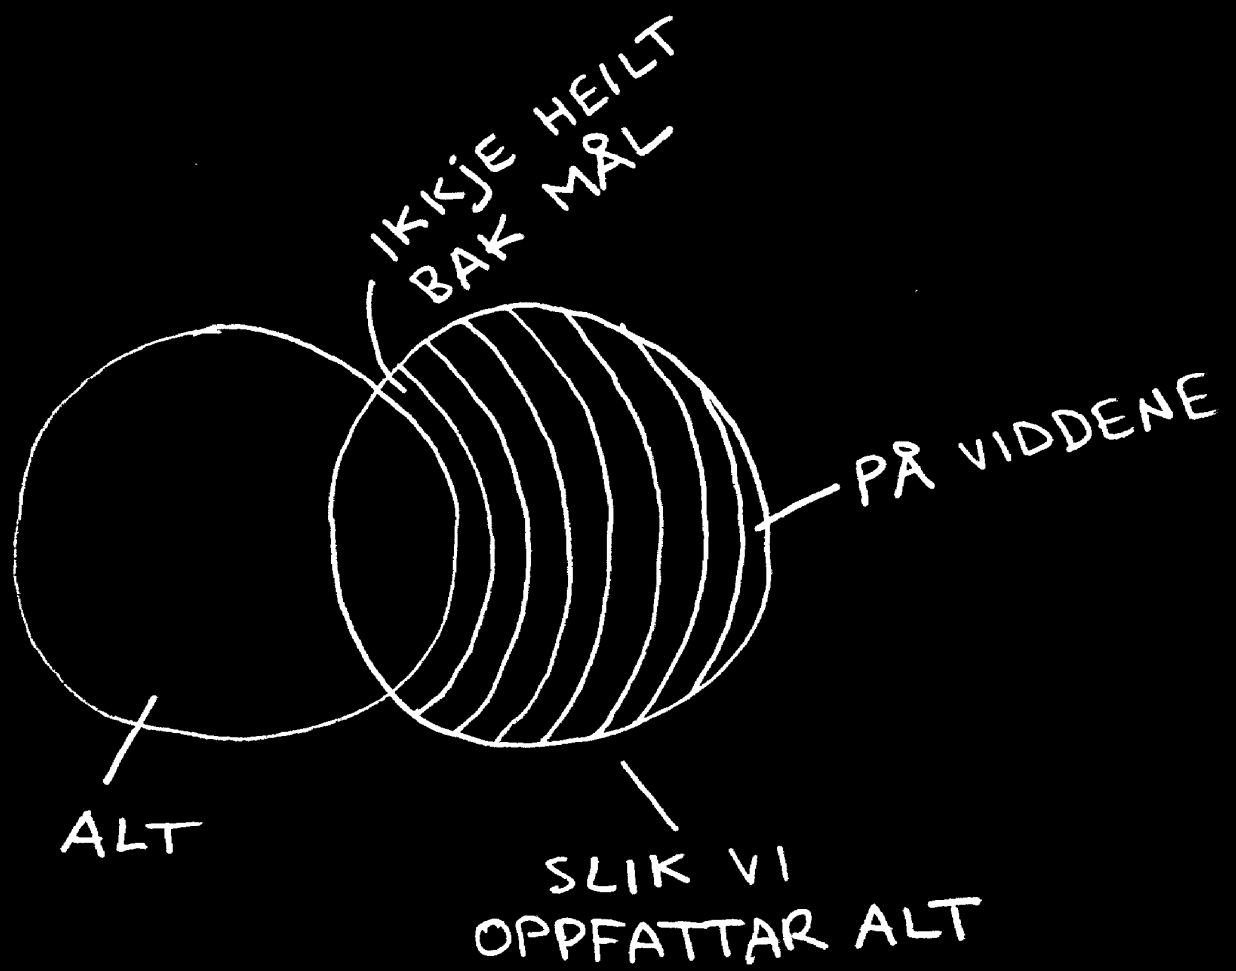 IKKJE HEILT
BAK MÅL
PÅ VIDDENE
ALT
SLIK VI
OPPFATTAR ALT